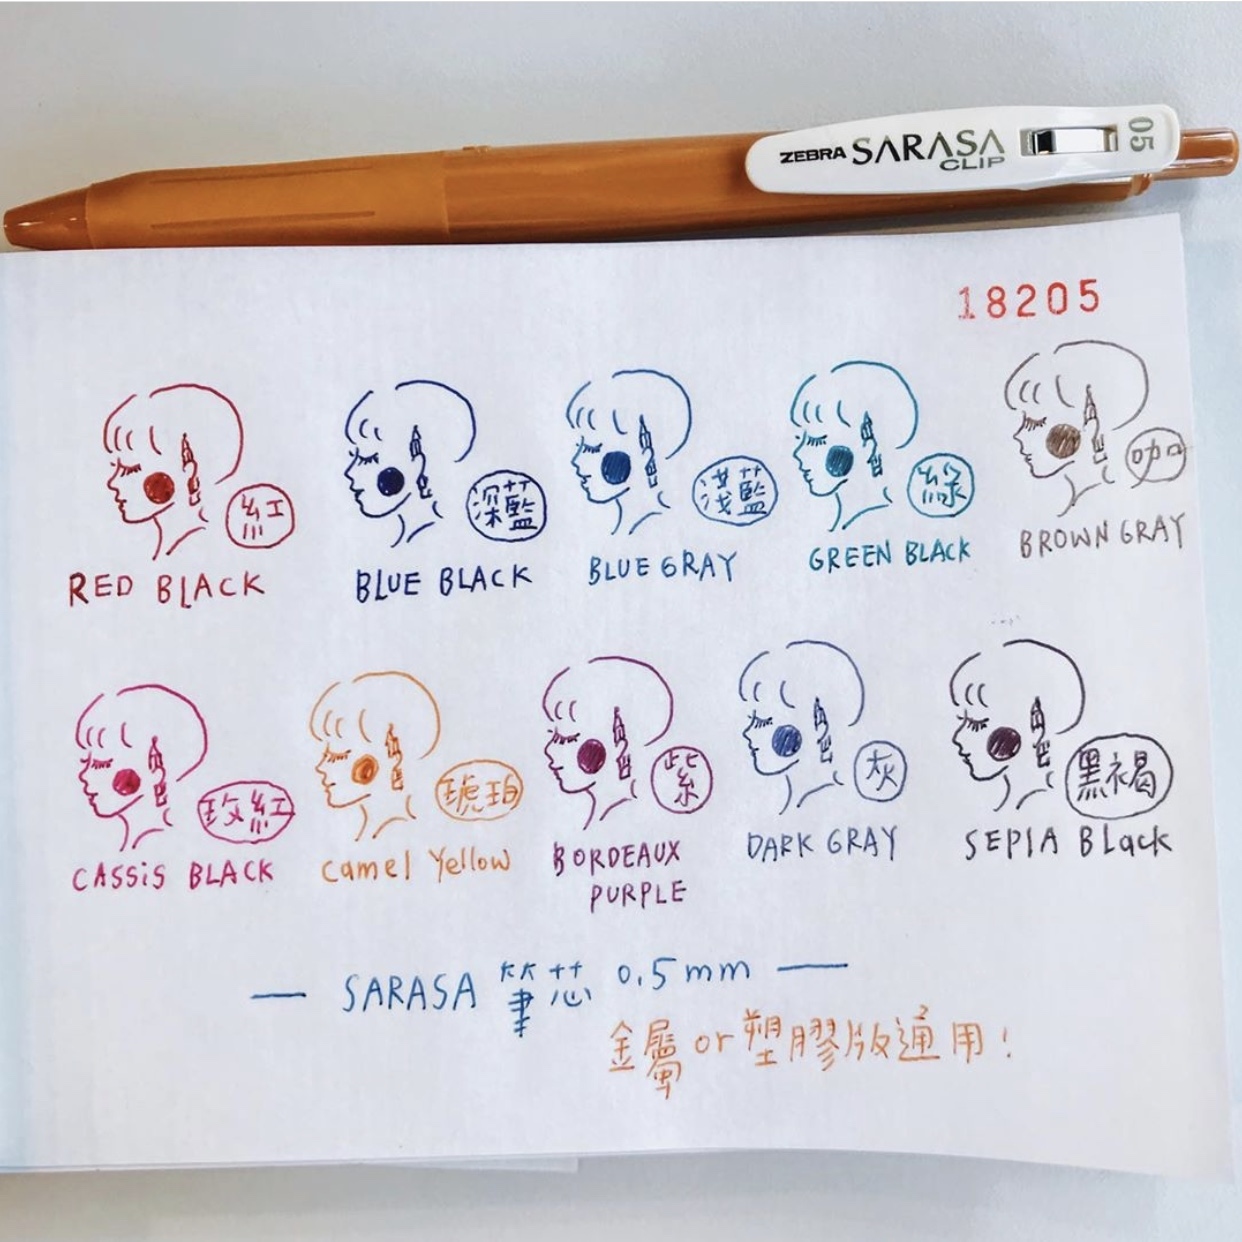 ZEBRA SARASA CLIP 05
18205
紅 深藍 淺藍 綠 咖
RED BLACK BLUE BLACK BLUE GRAY GREEN BLACK BROWN GRAY
玫紅 琥珀 紫 灰 黑褐
CASSiS BLACK Camel Yellow BORDEAUX PURPLE DARK GRAY SEPIA BLack
— SARASA 筆芯 0.5mm —
金屬 or 塑膠版通用!